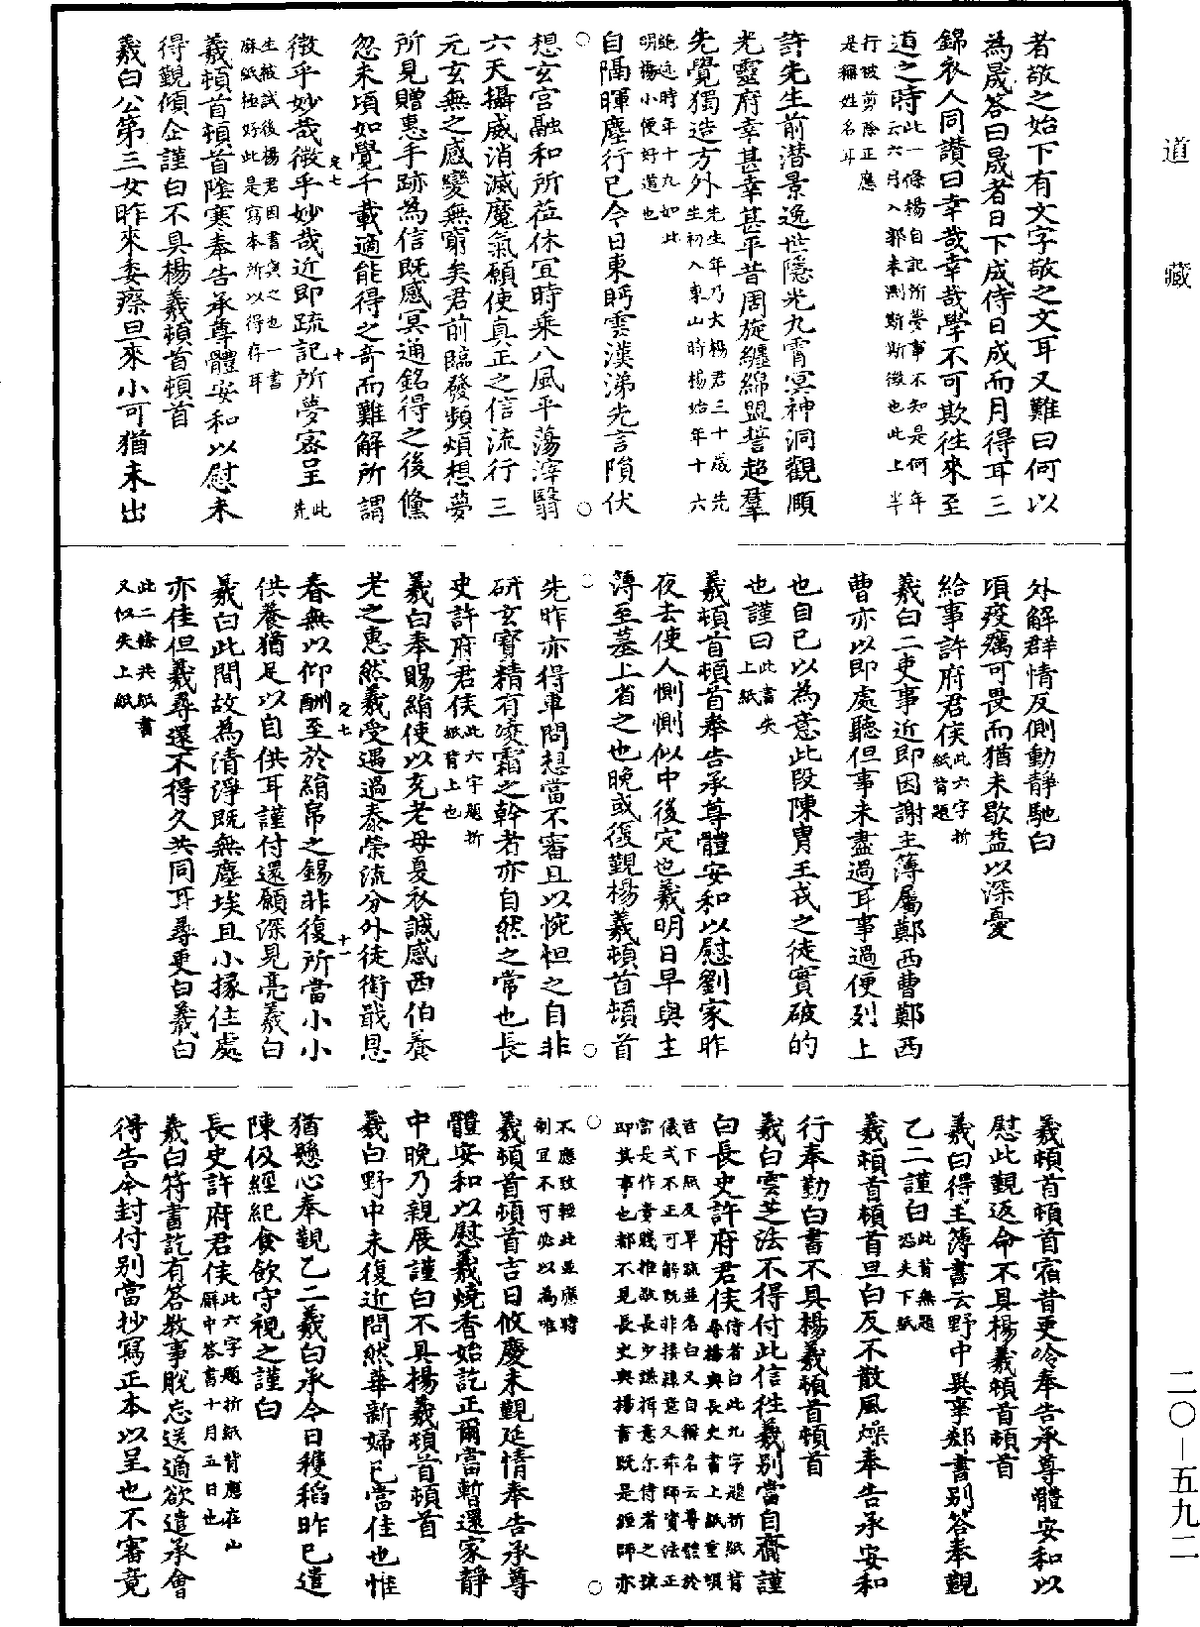 道藏
者敬之始下有文字敬之文耳又難曰何以
為晟答曰晟者日下成侍日成而月得耳三
錦衣人同讚曰幸哉幸哉學不可欺往來至
道之時此一條楊自記所夢事不知是何年
云六月入郭未測斯斯徵也此上半
行被剪除正應
是稱姓名耳
許先生前潛景逸世隱光九霄冥神洞觀頤
光靈府幸甚幸甚平昔周旋纏綿盟誓超羣
先覺獨造方外先生年乃大楊君三十歲先
生初入東山時楊始年十六
絕迹時年十九如此
明楊小便好道也
自隔暉塵行已今日東眄雲漢涕先言隕伏
想玄宮融和所莅休宜時乘八風平蕩滓翳
六天攝威消滅魔氣願使真正之信流行三
元玄無之感變無窮矣君前臨發頻煩想夢
所見贈惠手跡為信既感冥通銘得之後儵
忽未頃如覺千載適能得之奇而難解所謂
定七
徵乎妙哉徵乎妙哉近即疏記所夢密呈此
先
十
生緘試後楊君因書寘之也一書
麻紙極好此是寫本所以得存耳
羲頓首頓首陰寒奉告承尊體安和以慰未
得覲傾企謹白不具楊羲頓首頓首
羲白公第三女昨來委瘵旦來小可猶未出
外解群情反側動靜馳白
頃疫癘可畏而猶未歇益以深憂
給事許府君侯此六字折
紙背題
羲白二吏事近即因謝主簿屬鄭西曹鄭西
曹亦以即處聽但事未盡過耳事過便列上
也自己以為意此段陳胄王戎之徒實破的
也謹白此書失
上紙
羲頓首頓首奉告承尊體安和以慰劉家昨
夜去使人惻惻似中後定也羲明日早與主
薄至墓上省之也晚或復覲楊羲頓首頓首
先昨亦得車問想當不審且以惋怛之自非
研玄寶精有凌霜之幹者亦自然之常也長
史許府君侯此六字題折
紙背上也
羲白奉賜絹使以充老母夏衣誠感西伯養
老之惠然羲受遇過泰榮流分外徒銜戢恩
定七
春無以仰酬至於絹帛之錫非復所當小小
十一
供養猶足以自供耳謹付還願深見亮羲白
羲白此間故為清淨既無塵埃且小掾住處
亦佳但羲尋還不得久共同耳尋更白羲白
此二條共紙書
又似失上紙
羲頓首頓首宿昔更冷奉告承尊體安和以
慰此覲返命不具楊羲頓首頓首
羲白得主簿書云野中異事郊書別答奉覲
乙二謹白此書無題
恐失下紙
羲頓首頓首旦白反不散風燥奉告承安和
行奉勤白書不具楊羲頓首頓首
羲白雲芝法不得付此信往羲別當自齎謹
白長史許府君侯侍者白此九字題折紙背
尋楊與長史書上紙重頓
首下紙及單疏並名白又自稱名云尊體於
儀式不正可解既非接隸意又乖師資法正
當是作貴賤推敬長少謙挹意尔侍者之號
即其事也都不見長史與楊書既是經師亦
不應致輕此並應時
制宜不可必以為唯
羲頓首頓首吉日攸慶未覲延情奉告承尊
體安和以慰羲燒香始訖正爾當暫還家靜
中晚乃親展謹白不具楊羲頓首頓首
羲白野中未復近問然華新婦已當佳也惟
猶懸心奉覲乙二羲白承今日穫稻昨已遣
陳伋經紀食飲守視之謹白
長史許府君侯此六字題折紙背應在山
廨中答書十月五日也
羲白符書訖有答教事脫忘送適欲遣承會
得告今封付別當抄寫正本以呈也不審竟
二〇—五九二